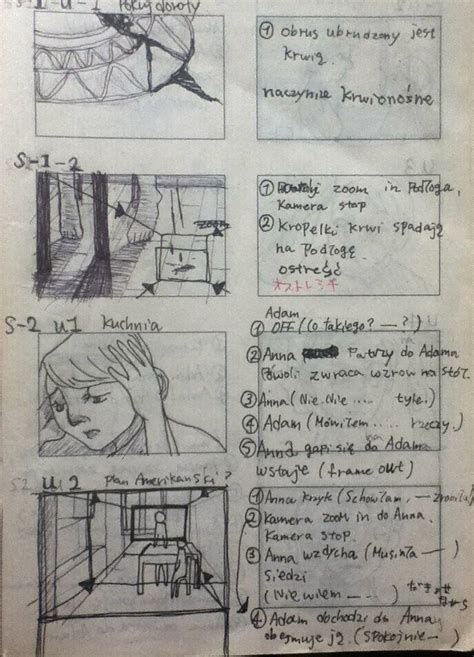 S-1-U-1 Pokój doroty
① Obrus ubrudzony jest
krwią.
naczynize krwionośne
S-1-2
① zoom in podłoga,
Kamera stop
zoom
② Kropelki krwi spadają
na podłogę
ostrość
S-2 U1 Kuchnia
Adam
① OFF (Co takiego? — ?)
② Anna Patrzy do Adama
Powoli zwraca wzrow na stół.
③ Anna (Nie. Nie .... tyle.)
④ Adam (Mówiłem .... rzeczy.)
⑤ Anna gapi się do Adam
wstaje (frame out)
S2 U2 plan Amerikanski?
① Anna krzyk (Schowłam, —
② Kamera zoom in do Anna.
Kamera stop.
③ Anna wzdycha (Musiała —)
siedzi
(Nie wiem — ...)
④ Adam obchodzi do Anna
obejmuje ją. (Spokojnie —)